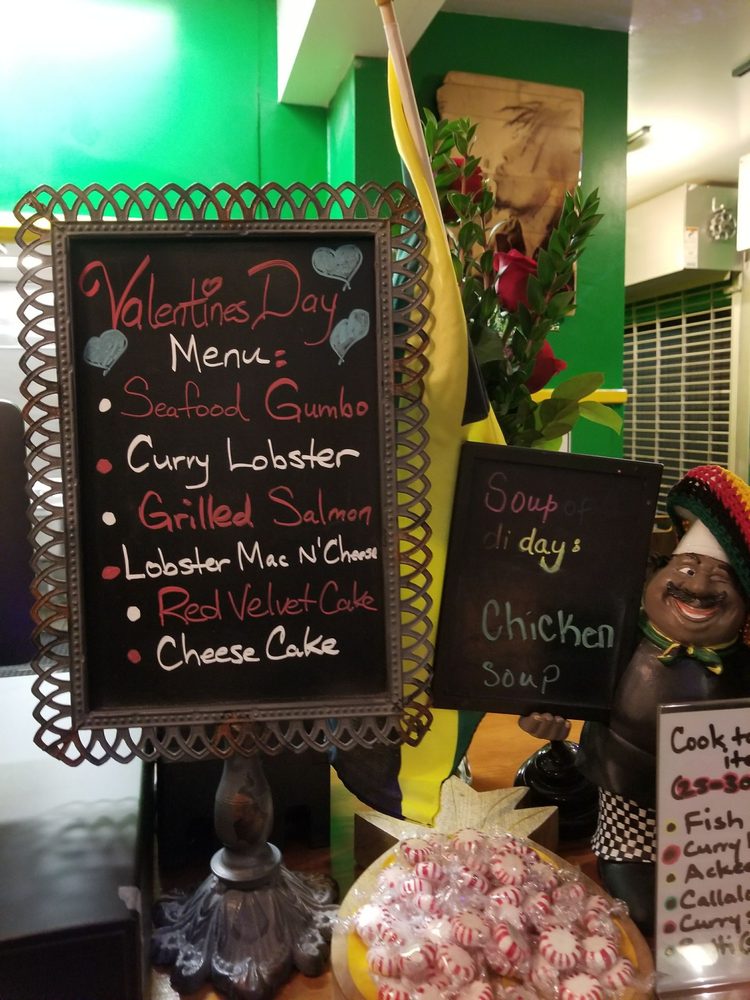 Valentines Day
Menu:
Seafood Gumbo
Curry Lobster
Grilled Salmon
Lobster Mac N'Cheese
Red Velvet Cake
Cheese Cake
Soup of
di day:
Chicken
soup
Cook to
Fish
Curry
Callal
Curry